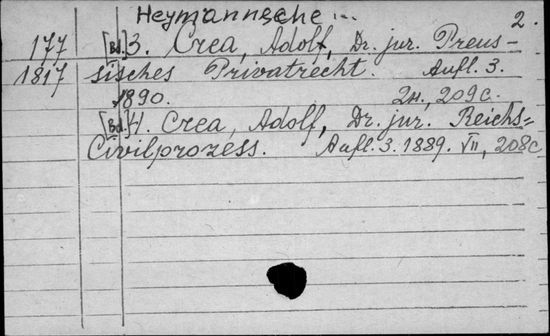 Heymannsche ... 2.
177 [Bd.]3. Crea, Adolf, Dr. jur. Preus-
1817 sisches Privatrecht. Aufl. 3.
1890. 2 ll., 209 c.
[Bd.]4. Crea, Adolf, Dr. jur. Reichs=
Civilprozess. Aufl. 3. 1889. VII, 208 c